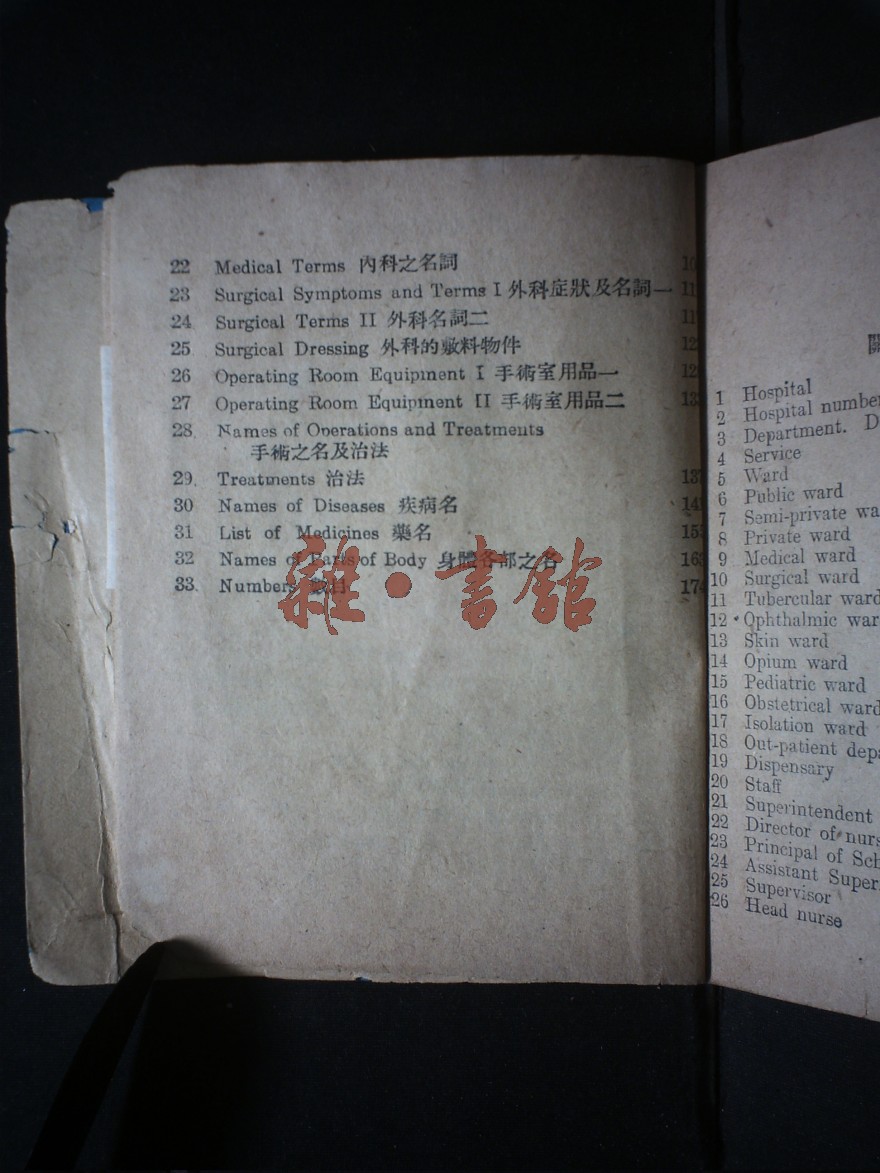 22 Medical Terms 內科之名詞 10
23 Surgical Symptoms and Terms I 外科症狀及名詞一 11
24 Surgical Terms II 外科名詞二 11
25 Surgical Dressing 外科的敷料物件 12
26 Operating Room Equipment I 手術室用品一 12
27 Operating Room Equipment II 手術室用品二 13
28. Names of Operations and Treatments
手術之名及治法
29. Treatments 治法 137
30 Names of Diseases 疾病名 14
31 List of Medicines 藥名 15
32 Names of Parts of Body 身體各部之名 163
33. Numbers 數目 174
雜·書館
關
1 Hospital
2 Hospital number
3 Department. D
4 Service
5 Ward
6 Public ward
7 Semi-private wa
8 Private ward
9 Medical ward
10 Surgical ward
11 Tubercular ward
12 Ophthalmic war
13 Skin ward
14 Opium ward
15 Pediatric ward
16 Obstetrical ward
17 Isolation ward
18 Out-patient depa
19 Dispensary
20 Staff
21 Superintendent
22 Director of nurs
23 Principal of Sch
24 Assistant Super
25 Supervisor
26 Head nurse